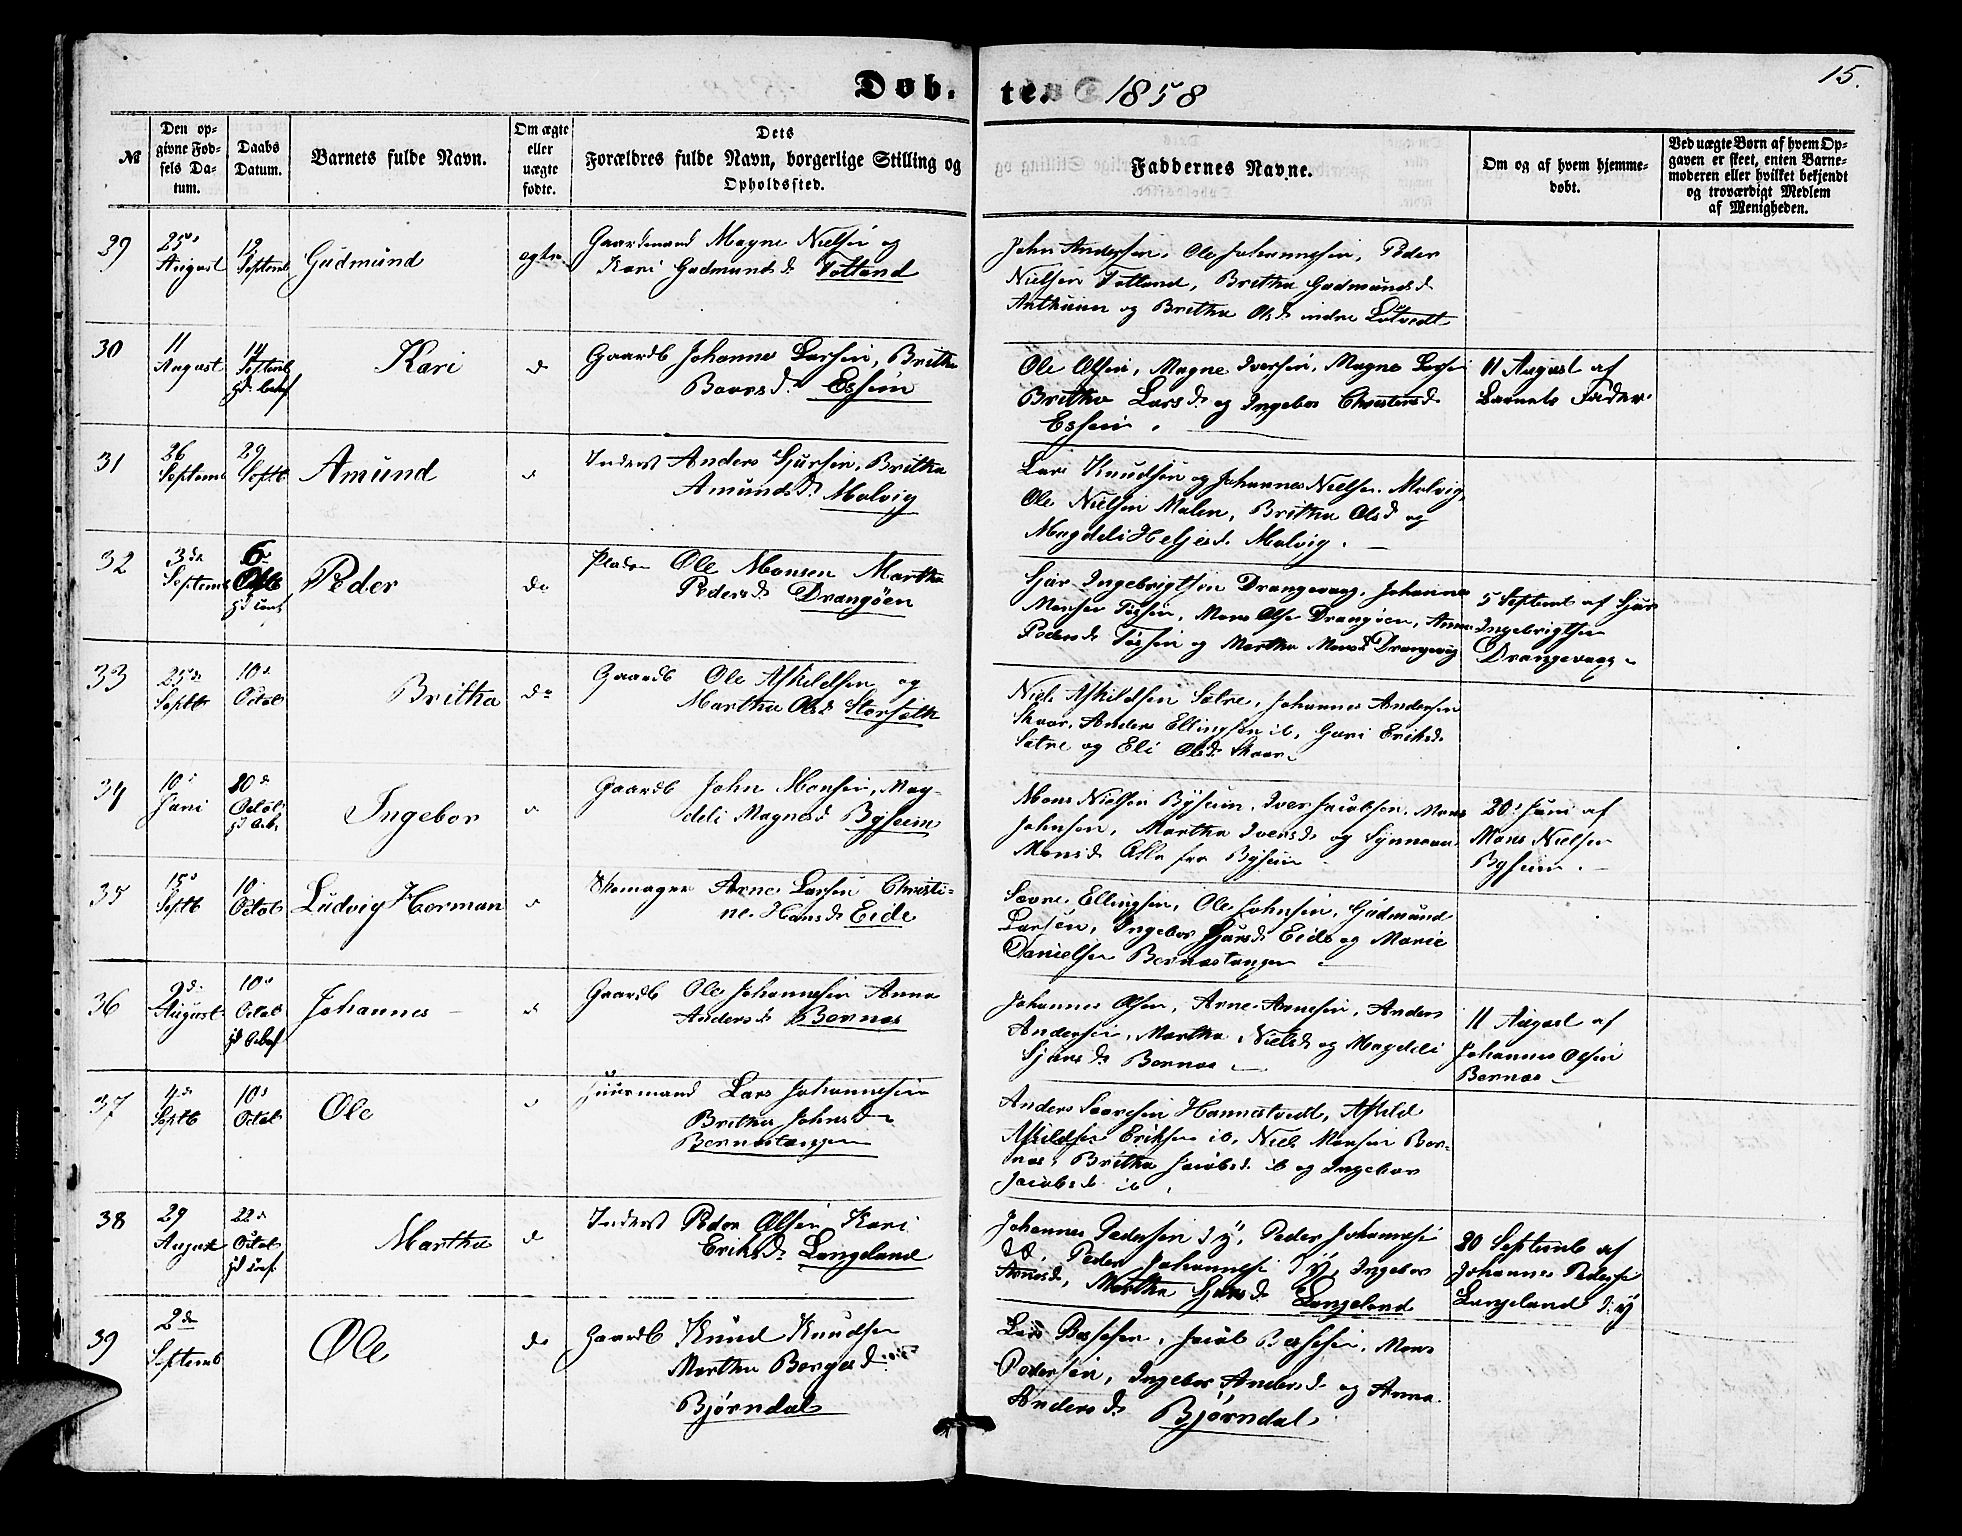 Døb-
te. 1858
15.
№
Den op-
givne Fød-
sels Da-
tum.
Daabs
Datum.
Barnets fulde Navn.
Om ægte
eller
uægte
fødte.
Dets
Forældres fulde Navn, borgerlige Stilling og
Opholdssted.
Faddernes Navne.
Om og af hvem hjemme-
døbt.
Ved uægte Børn af hvem Op-
gaven er skeet, enten Barne-
moderen eller hvilket bekjendt
og troværdigt Medlem
af Menigheden.
39
25
August
12
Septemb
Gudmund
ægte
Gaardmand Magne Nielsen og
Kari Gudmundsd Totland
John Andersen, Ole Johannesen, Peder
Nielsen Totland, Britha Gudmundsd
og Britha Olsd indre Løtvedt
30
11
August
14
Septemb
Kari
d
Gaardb Johannes Larsen, Britha
Baarsd. Essem
Ole Olsen, Magne Iversen, Magne Lars
Britha Larsd og Ingebor Christensd
Essem.
11 August af
Barnets Fader
31
26
Septemb
29
Septb
Amund
d
Inderst Anders Sjursen, Britha
Amundsd. Molvig
Lars Knudsen og Johannes Nielsen Molvig,
Ole Nielsen Malen, Britha Olsd og
Magdeli Heljesd Molvig.
32
3de
Septemb
6
Peder
do
Plads Ole Monsen Martha
Pedersd Drangøen
Sjur Ingebrigtsen Drangevaag, Johannes
Monsen Tøssen, Mons Olse Drangøen, Anna
Pedersd Tøssen og Martha Monsd Drangevaag
5 Septemb af Sjur
Ingebrigtsen
Drangevaag
33
25de
Septb
10d
Octob
Britha
do
Gaardb Ole Askildsen og
Martha Olsd Storseth
Niels Askildsen Sætre, Johannes Andersen
Skaar, Anders Ellingsen ib, Guri Eriksd
Sætre og Eli Olsd Skaar
34
10d
Juni
20d
Octob
Ingebor
d
Gaardb John Monsen, Mag-
deli Magnesd Bysem
Mons Nielsen Bysem, Iver Jacobsen, Mons
Johnsen, Martha Iversd og Synneva
Monsd Alle fra Bysem
20 Juni af
Mons Nielsen
Bysem.
35
15
Septb
10
Octob
Ludvig Herman
d
Skomager Arne Larsen Christi-
ne Hansd Eide
Sævre Ellingsen, Ole Johnsen, Gudmund
Larsen, Ingebor Sjursd Eide og Marie
Danielsen Bernestangen
36
9d
August
10d
Octob
Johannes
d
Gaardb Ole Johannesen Anna
Andersd Bernæs
Johannes Olsen, Arne Arnesen, Anders
Andersen, Martha Nielsd og Magdeli
Sjursd Bernæs
11 August af
Johannes Olsen
Bernæs
37
4de
Septb
10d
Octob
Ole
d
Lars Johannesen
Britha Johnsd
Bernestangen
Anders Sævresen Hannestvedt, Askild
Askildsen Eriksen ib, Niels Monsen Ber-
næs, Britha Jacobsd ib og Ingebor
Jacobsd ib.
38
29
August
22d
Octob
Martha
d
Inderst Peder Olsen Kari
Eriksd Langeland
Johannes Pedersen I y, Peder Johannese
Peder Johannese I y, Ingebor
Arnesd, Martha Sjursd Langeland
20 Septemb af
Johannes Pederse
Langeland I y
39
2de
Septemb
Ole
do
Gaardb Knud Knudsen
Martha Børgesd
Bjørndal
Lars Bessesen, Jacob Bessesen, Mons
Pedersen, Ingebor Andersd og Anna
Andersd Bjørndal